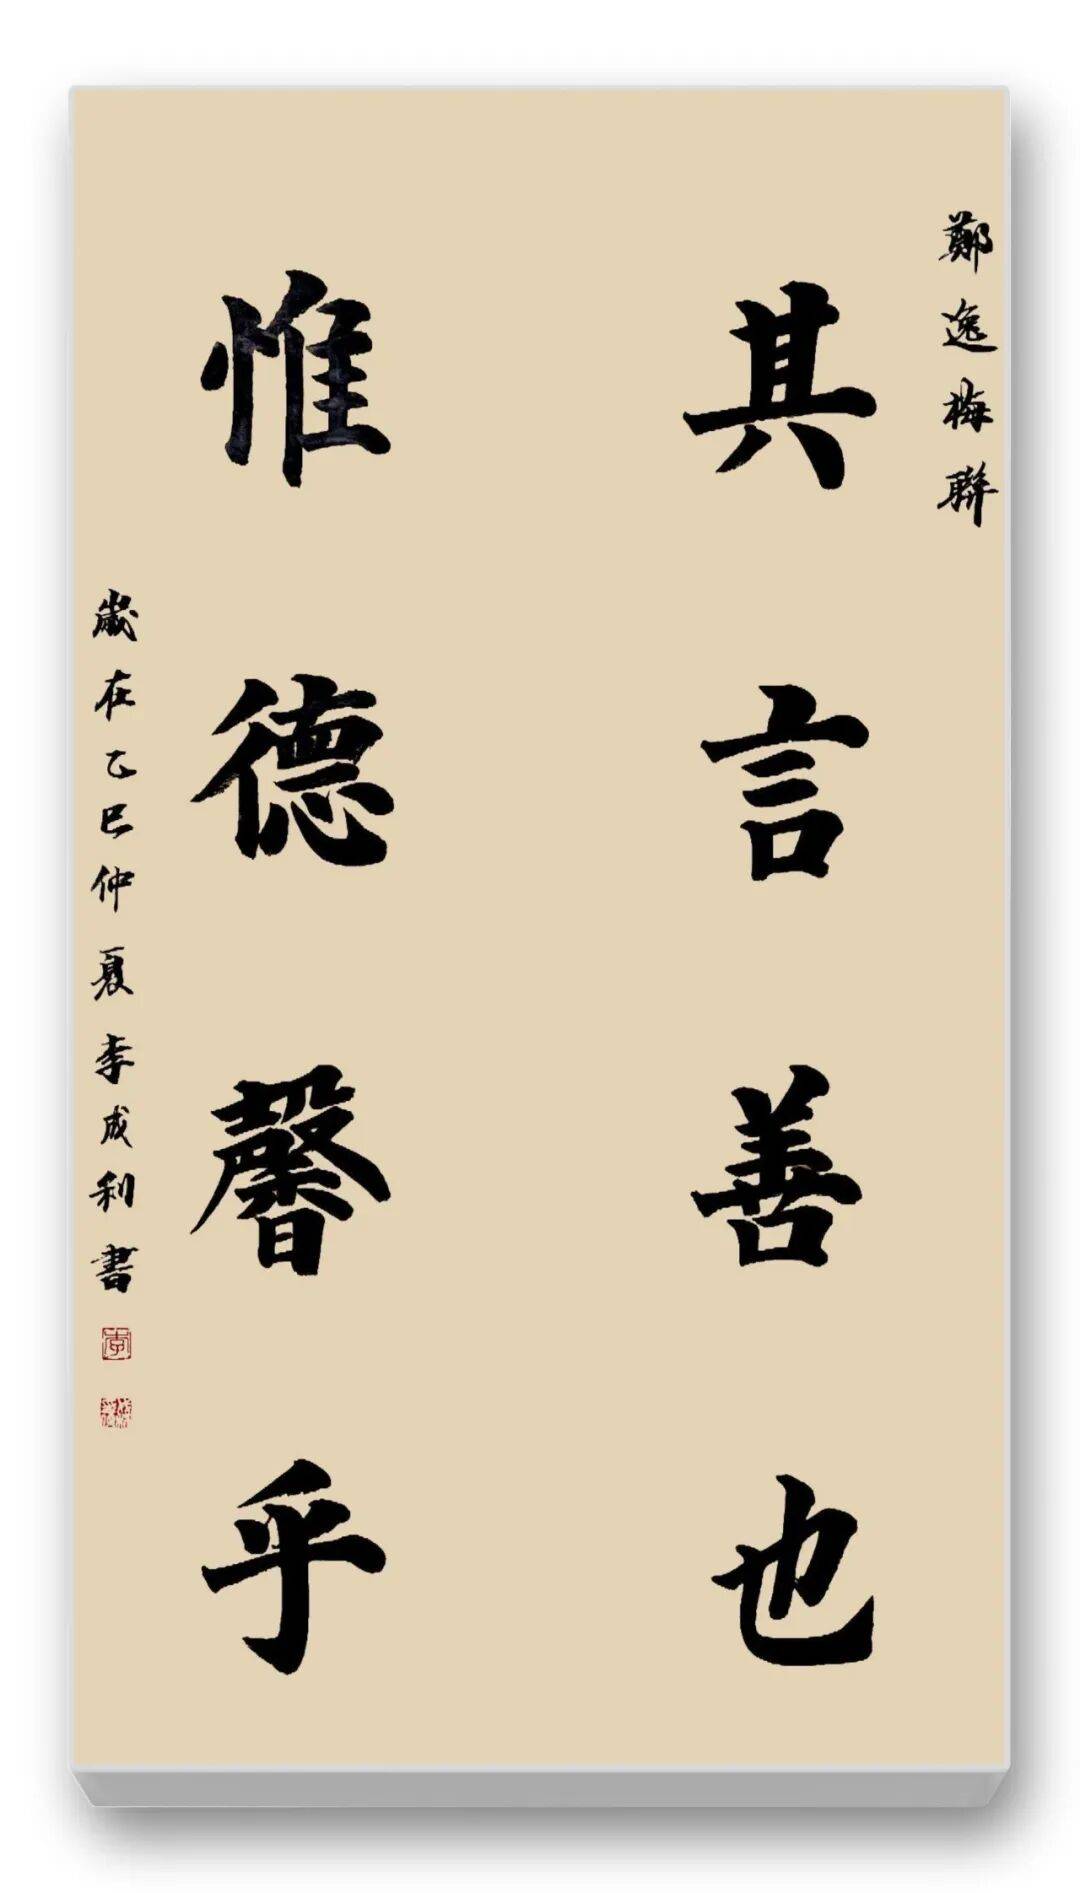 鄭逸梅聯
其言善也
惟德馨乎
歲在乙巳仲夏李成利書
李